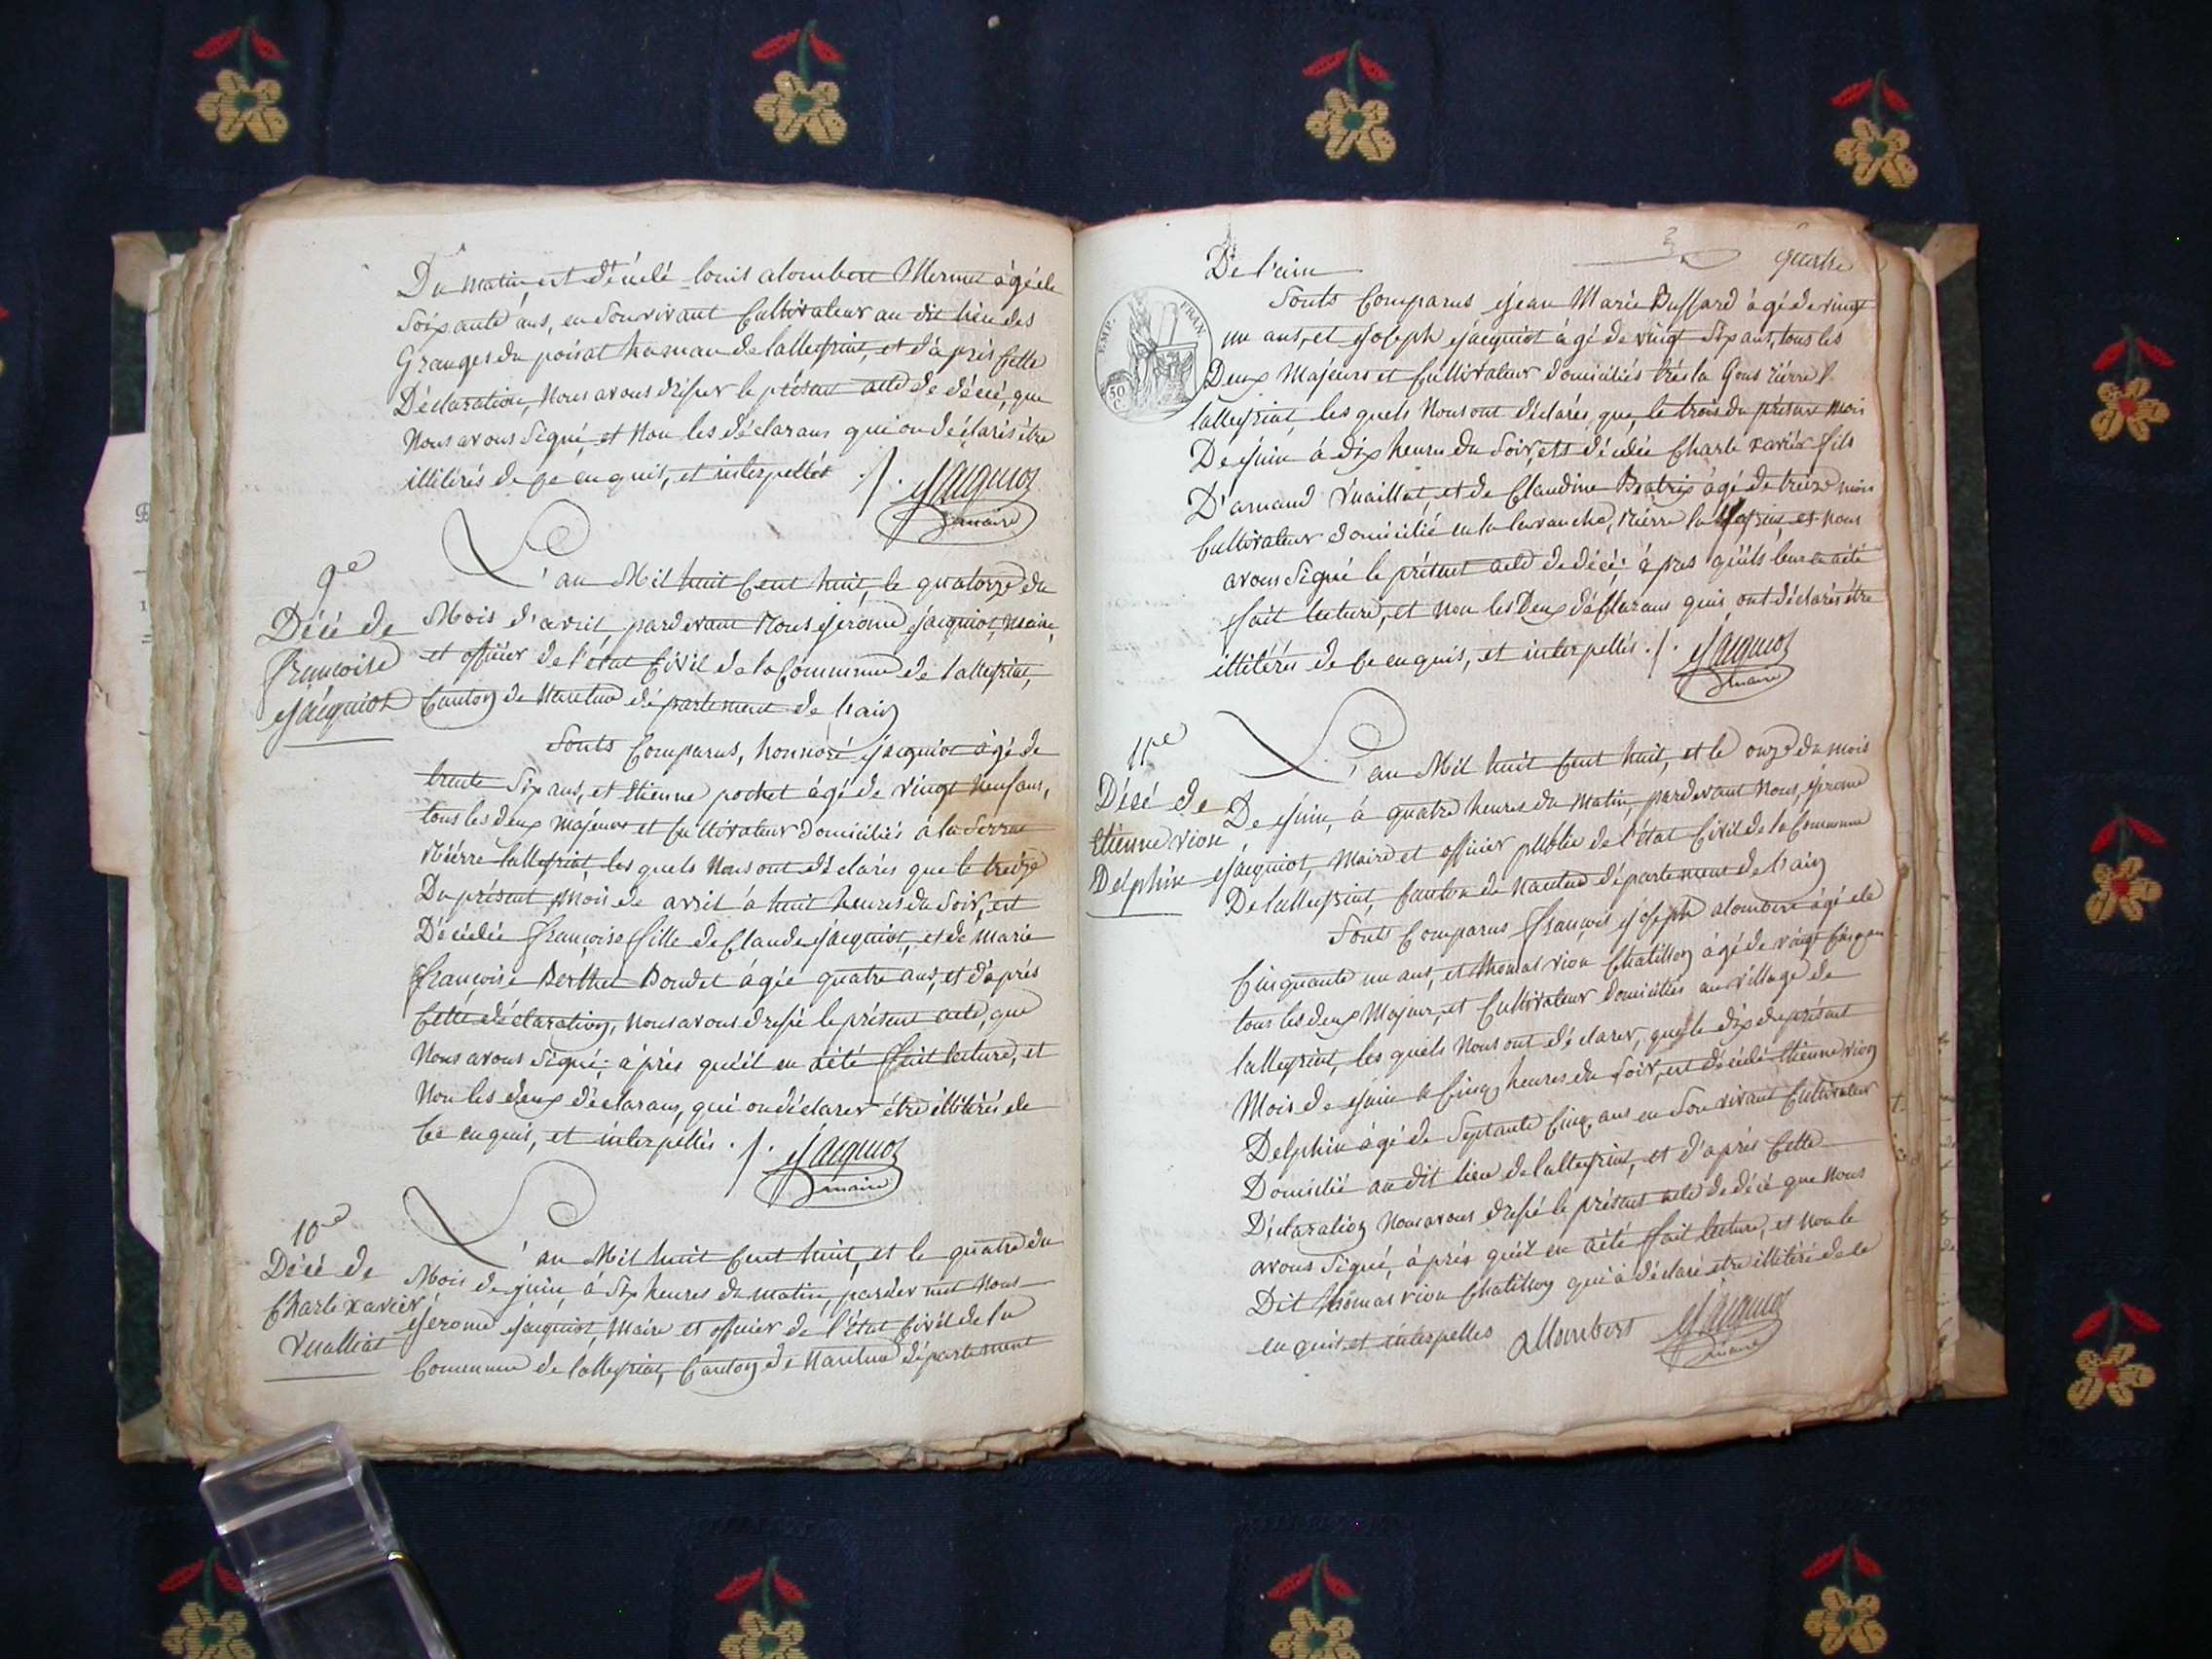 Du matin, est décédé louis alombert Mermet âgé de
Soixante ans, en Son vivant Cultivateur au dit lieu des
Granges du poisat hamau de lalleyriat, et d'après Cette
Déclaration, Nous avons dresser le présent acte de décé, que
Nous avons Signé, et Non les déclarans qui on déclarés être
illitérés de Ce enquis, et interpellés ./. Jacquiot
maire
9e
Décé de
françoise
Jacquiot
L'an Mil huit Cent huit, le quatorze du
Mois d'avril, pardevant Nous Jerome Jacquiot, Maire,
et officier de l'état Civil de la Commune de lalleyriat,
Canton de Nantua département de l'ain
Sonts Comparus, honnoré Jacquiot âgé de
trente Six ans, et Etienne pochet âgé de vingt Neuf ans,
tous les deux Majeurs et Cultivateur domiciliés à la Serraz
Riérre lalleyriat, les quels Nous ont déclarés que le treize
Du présent Mois de avril à huit heures du Soir, est
Décédée françoise fille de Claude Jacquiot, et de Marie
françoise Berthet Bondet âgée quatre ans, et d'après
Cette déclaration, Nous avons dressé le présent acte, que
Nous avons Signé; après quéil en àété fait lecture, et
Non les deux déclarans, qui on déclarer être illitérés de
Ce enquis, et interpellés ./. Jacquiot
maire
10e
Décé de
Charle xavier
Vuailliat
L'an Mil huit Cent huit, et le quatre du
Mois de juin, à Six heures du matin, pardevant Nous
Jerome Jacquiot, Maire et officier de l'état Civil de la
Commune de lalleyriat, Canton de Nantua département
quatre
De l'ain
EMP. FRAN.
50 C.
Sonts Comparus Jean Marie Buffard âgé de vingt
un ans, et Joseph Jacquiot âgé de vingt Six ans, tous les
Deux Majeurs et Cultivateur domiciliés rière
lalleyriat, les quels Nous ont déclarés que, le trois du présent Mois
De Juin à dix heures du Soir, est décédée Charle xavier fils
D'arnaud Vuaillat, et de Claudine Beatrix âgé de treize mois
Cultivateur domicilié en la levanche, Riérre lalleyriat et Nous
avons Signé le présent acte de décé; après qu'ils leur en àété
fait lecture, et Non les Deux déclarans quis ont déclarés être
illitérés de Ce enquis, et interpellés ./. Jacquiot
maire
11e
Décé de
Etienne vion
Delphin
L'an Mil huit Cent huit, et le onze du mois
De Juin, à quatre heures du Matin, pardevant Nous, Jerome
Jacquiot, Maire et officier publie de l'état Civil de la Commune
De lalleyriat, Canton de Nantua département de l'ain
Sonts Comparus françois Joseph alombert âgé de
Cinquante un ans, et thomas vion Chatillon âgé de vingt Cinq an
tous les deux Majeur, et Cultivateur domiciliés au village de
lalleyriat, les quels Nous ont déclarer, que le dix du présent
Mois de Juin à Cinq heures du Soir, est décédé Etienne vion
Delphin âgé de Septante Cinq ans en Son vivant Cultivateur
Domicilié au dit lieu de lalleyriat, et d'après Cette
Déclaration Nous avons dressé le présent acte de décé que Nous
avons Signé, après quéil en àété fait lecture, et Non le
Dit thomas vion Chatillon qui à déclaré être illitéré de Ce
enquis et interpelles allombert Jacquiot
maire